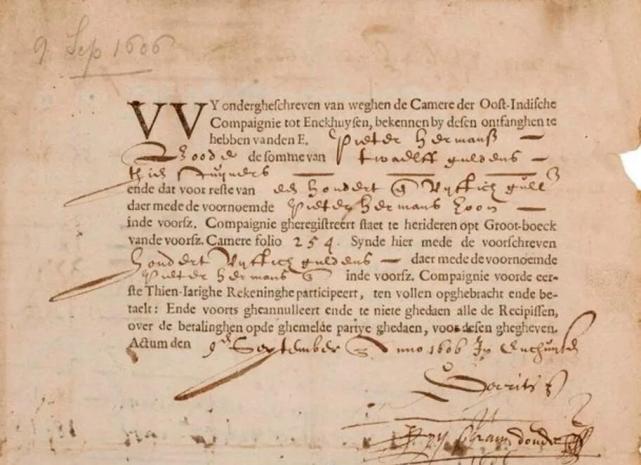 9 Sep 1606
VVY ondergheschreven van weghen de Camere der Oost-Indische
Compaignie tot Enckhuysen, bekennen by desen ontfanghen te
hebben vanden E. Pieter Hermansz
de somme van twaelff guldens
ende dat voor reste van hondert gull
daer mede de voornoemde Pieter Hermans zoon
inde voorsz. Compaignie gheregistreert staet te herideren opt Groot-boeck
vande voorsz. Camere folio 254. Synde hier mede de voorschreven
hondert guldens daer mede de voornoemde
Pieter Hermans inde voorsz. Compaignie voorde eer-
ste Thien-Iarighe Rekeninghe participeert, ten vollen opghebracht ende be-
taelt: Ende voorts gheannulleert ende te niete ghedaen alle de Recipissen,
over de betalinghen opde ghemelde partye ghedaen, voor desen ghegheven.
Actum den 9 September Anno 1606 In